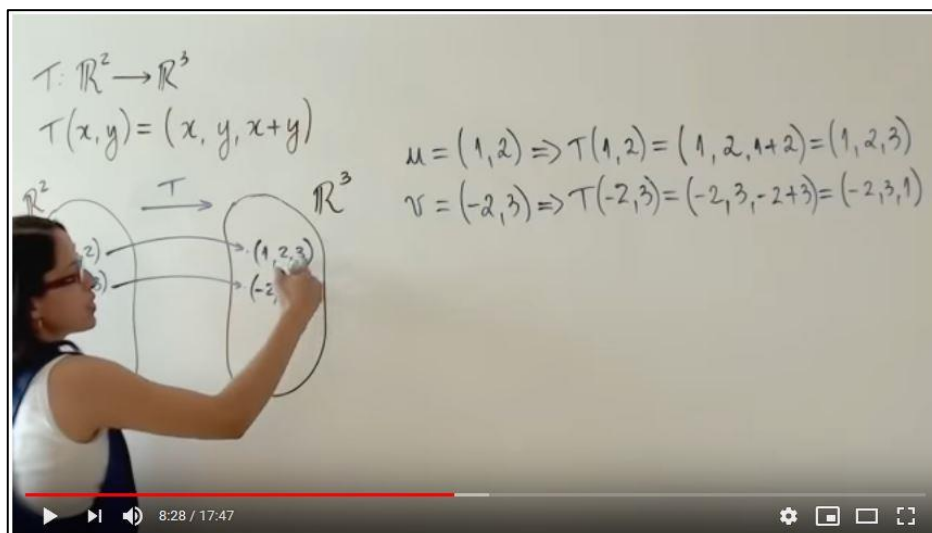 T: ℝ² → ℝ³
T(x,y) = (x, y, x+y)
u = (1,2) => T(1,2) = (1,2,1+2) = (1,2,3)
v = (-2,3) => T(-2,3) = (-2,3,-2+3) = (-2,3,1)
ℝ² T ℝ³
2) (1,2,3)
3) (-2,
8:28 / 17:47